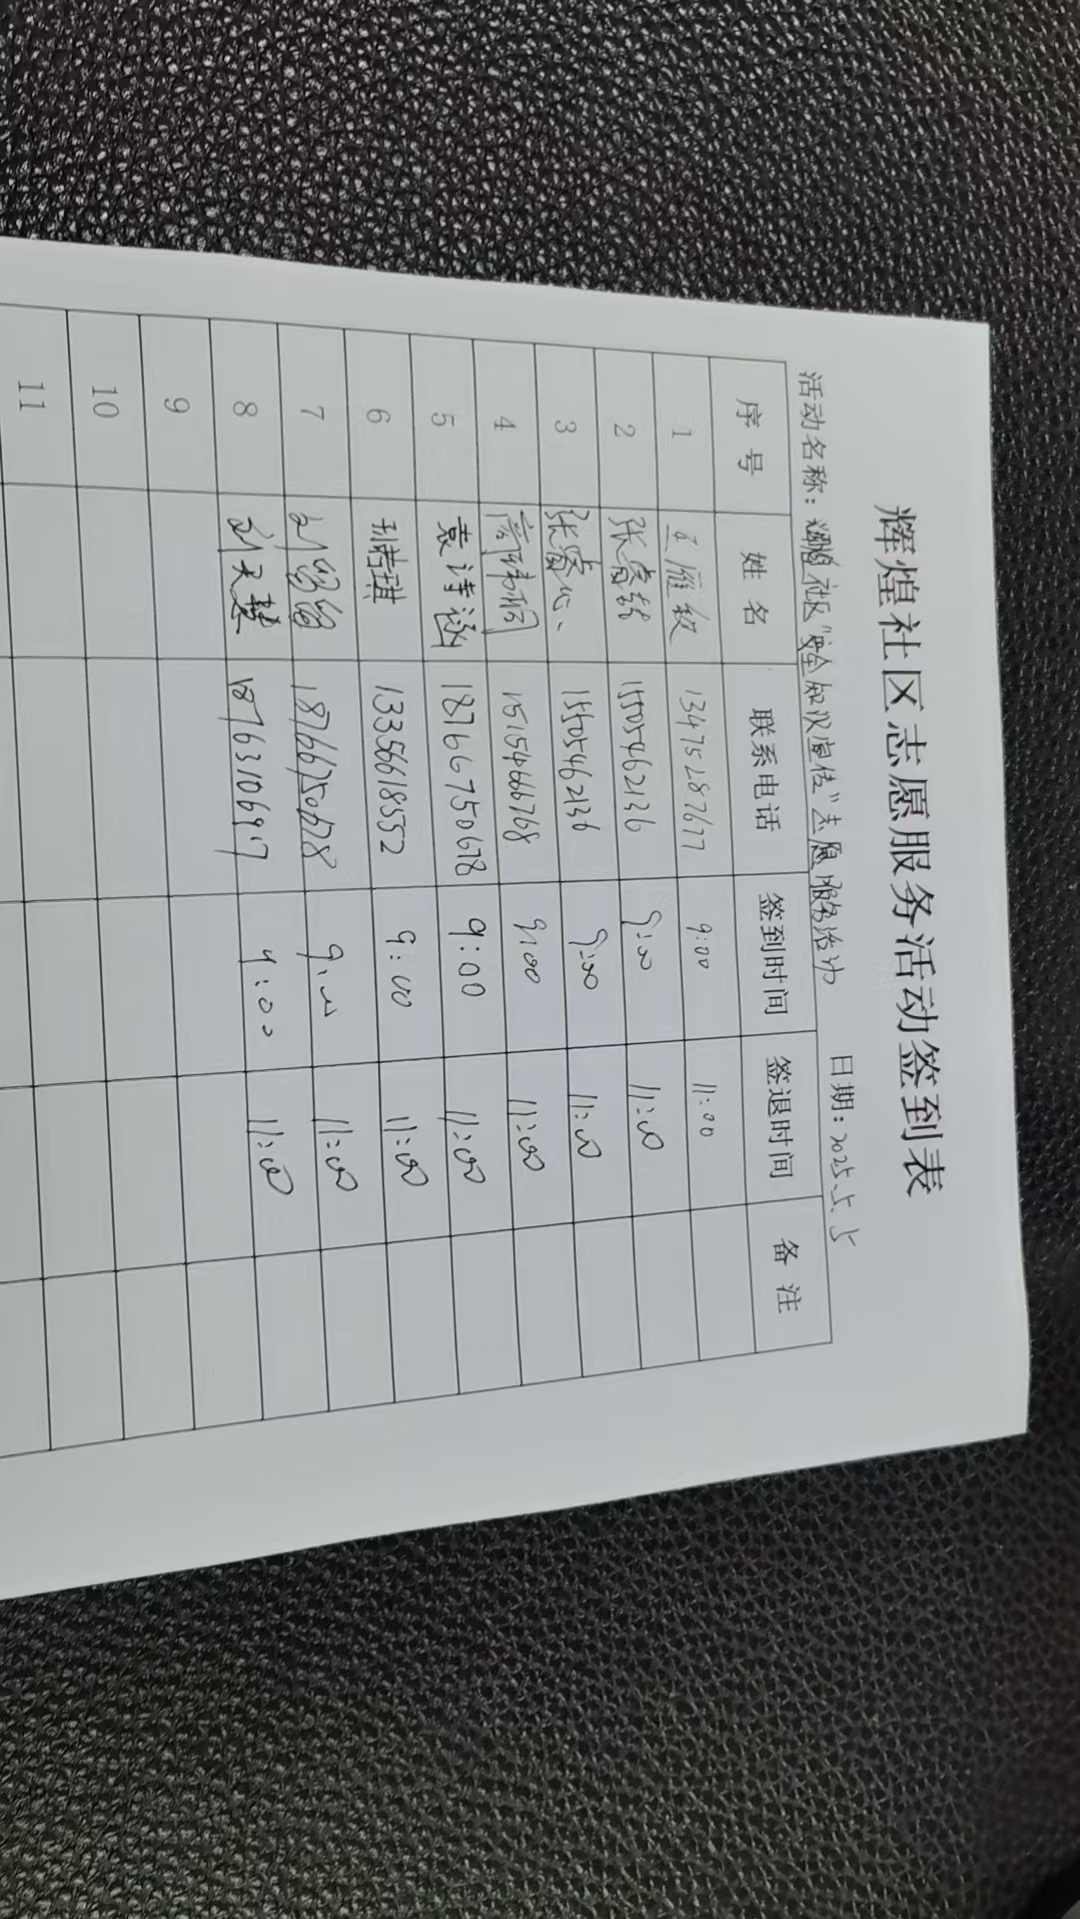 辉煌社区志愿服务活动签到表
活动名称：社区"安全知识宣传"志愿服务活动 日期：2025.5.5
序号 姓名 联系电话 签到时间 签退时间 备注
1 王雁纹 13475287677 9:00 11:00
2 张睿 15505462136 9:00 11:00
3 张睿心 15505462136 9:00 11:00
4 15154666768 9:00 11:00
5 袁诗涵 18766750678 9:00 11:00
6 琪 13356618552 9:00 11:00
7 刘 18766750678 9:00 11:00
8 刘天慧 18763106917 9:00 11:00
9
10
11